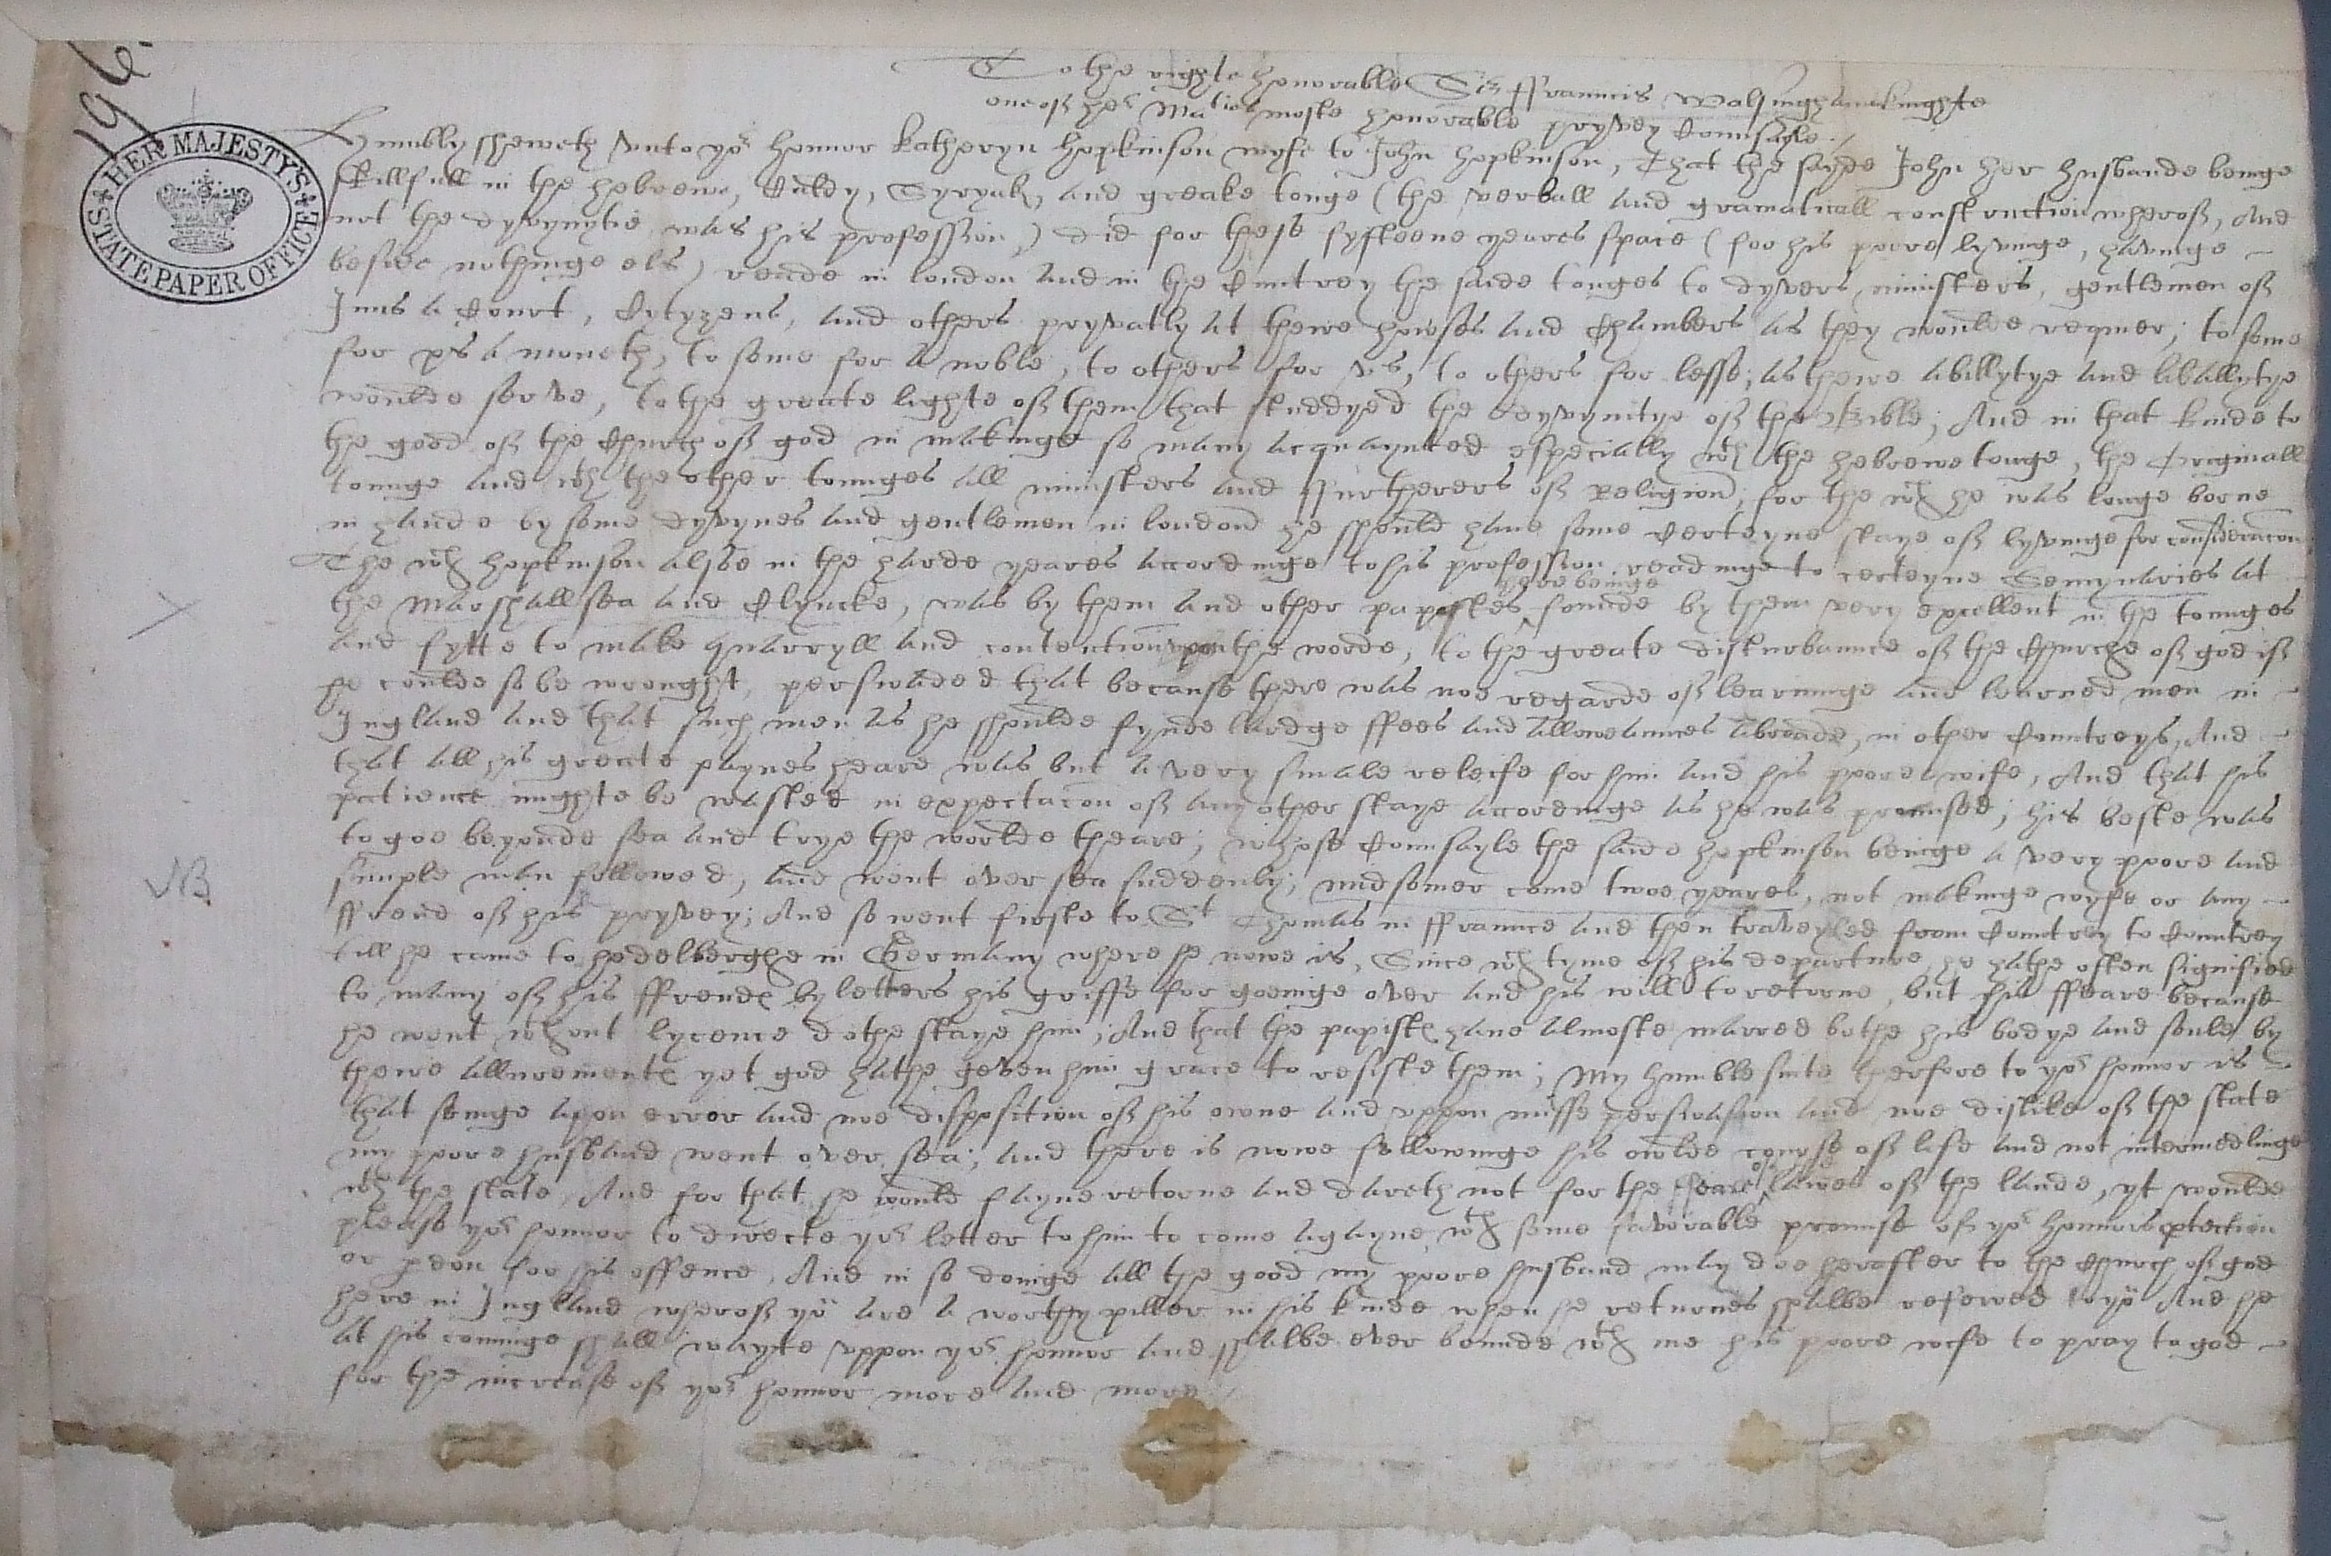 196
HER MAJESTY'S STATE PAPER OFFICE
To the righte honorable Sr ffrauncis Walsingham knighte
one of her Maties moste honorable pryvey Counsayle./
Humbly sheweth vnto yor honnor Katheryn Hopkinson wyfe to John Hopkinson, That the sayde John her husbande beinge
skillfull in the hebrewe, Caldy, Syryak, and greake tonge (the verball and gramaticall construction wherof, and
not the dyvynytie was his profession) did for these fyfteene yeares space (for his poore lyvinge, havinge
beside nothinge els) reade in london and in the Cuntrey the saide tonges to dyvers ministers, gentlemen of
Inns a Court, Cytyzens, and others pryvatly at there howses and Chambers as they woulde requier; to some
for xs a moneth, to some for a noble, to others for vs, to others for lesse; as there abillytye and liballytye
woulde serve, to the greate lighte of them that studdyed the dyvynitye of the Bible; And in that kinde to
the good of the Church of god in makinge so many acquaynted especially wth the hebrewe tonge, the Originall
tounge and wth the other tounges all ministers and furtherers of Religion; for the wch he was longe borne
in hande by some dyvynes and gentlemen in london he should have some Certeyne staye of lyvinge for consideracon
The wch Hopkinson alsoe in the harde yeares accordinge to his profession readinge to certeyne Semynaries at
the Marshallsea and Clyncke, was by them and other papistes, there beinge founde by them very excellent in the tounges
and fytte to make quarryll and contention vpon the worde, to the greate disturbaunce of the Churche of god if
he coulde so be wrought, perswaded that because there was noe regarde of learninge and learned men in
Ingland and that such men as he shoulde fynde lardge ffees and allowaunces abroade, in other Countreys, And
that all his greate paynes heare was but a very smale releife for him and his poore wife, And that his
patience mighte be wasted in expectacon of any other staye accordinge as he was promised; his beste was
to goe beyonde sea and trye the worlde theare; whose Counsayle the saide Hopkinson beinge a very poore and
simple man followed, and went over sea suddenly; midsomer come twoe yeares, not makinge wyfe or any
NB
ffrend of his pryvey; And so went firste to St Thomas in ffraunce and then traveyled from Countrey to Countrey
till he came to hedelberghe in Germany where he nowe is, Since wch tyme of his departure he hathe often signified
to many of his ffrendes by letters his griffe for goeinge over and his will to retorne, but his ffeare because
he went wthout lycence dothe staye him; And that the papistes have almoste marred bothe his bodye and soule by
there allurementes yet god hathe geven him grace to resiste them; My humble suite therfore to yor honnor is
that seinge apon error and noe disposition of his owne and vppon misse perswasion and noe dislike of the state
my poore husband went over sea; and there is nowe followinge his owlde course of life and not intermedlinge
wth the state, And for that he would fayne retorne and dareth not for the feare of lawes of the lande, yt woulde
please yor honnor to directe yor letter to him to come agayne, wth some favorable promise of yor honnors ptection
or pdon for his offence, And in so doinge all the good my poore husband may doe herafter to the Church of god
here in Ingland wherof yu are a worthy piller in his kinde when he returnes shalbe referred to yu And he
at his cominge shall wayte vppon yor honnor and shalbe ever bounde wth me his poore wife to pray to god
for the increase of yor honnor more and more./